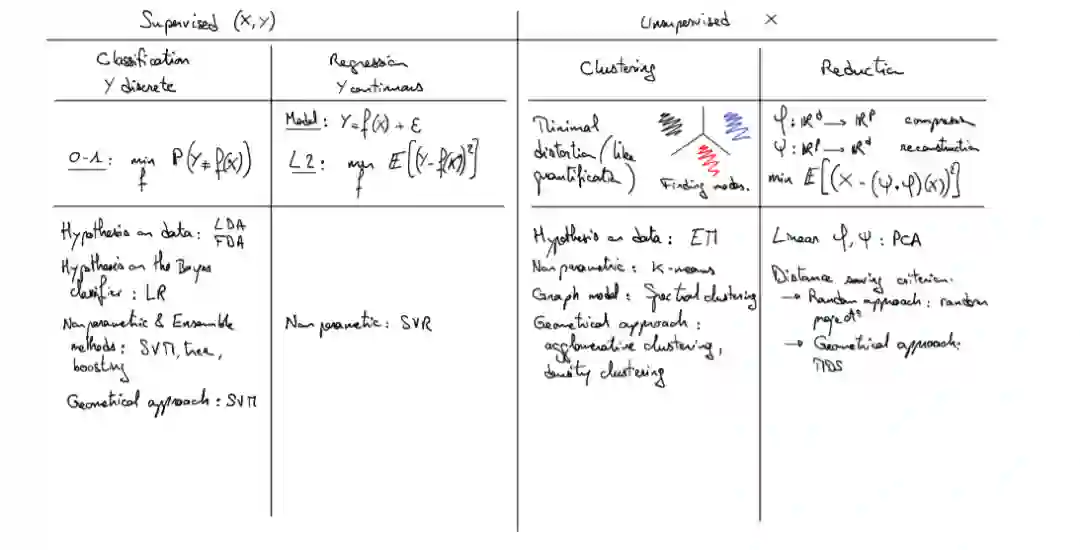 Supervised (X, Y)
Unsupervised X
Classification
Y discrete
Regression
Y continuous
Clustering
Reduction
0-1: min P(Y ≠ f(X))
f
Model: Y = f(X) + ε
L2: min E[(Y - f(X))²]
f
Minimal
distortion (like
quantification)
Finding nodes.
φ: ℝᵈ → ℝᵖ compression
ψ: ℝᵖ → ℝᵈ reconstruction
min E[(X - (ψ∘φ)(X))²]
Hypothesis on data: LDA
FDA
Hypothesis on the Bayes
classifier: LR
Nonparametric & Ensemble
methods: SVM, tree,
boosting
Geometrical approach: SVM
Nonparametric: SVR
Hypothesis on data: EM
Nonparametric: K-means
Graph model: Spectral clustering
Geometrical approach:
agglomerative clustering,
density clustering
Linear φ, ψ: PCA
Distance saving criterion.
→ Random approach: random
project°
→ Geometrical approach:
MDS